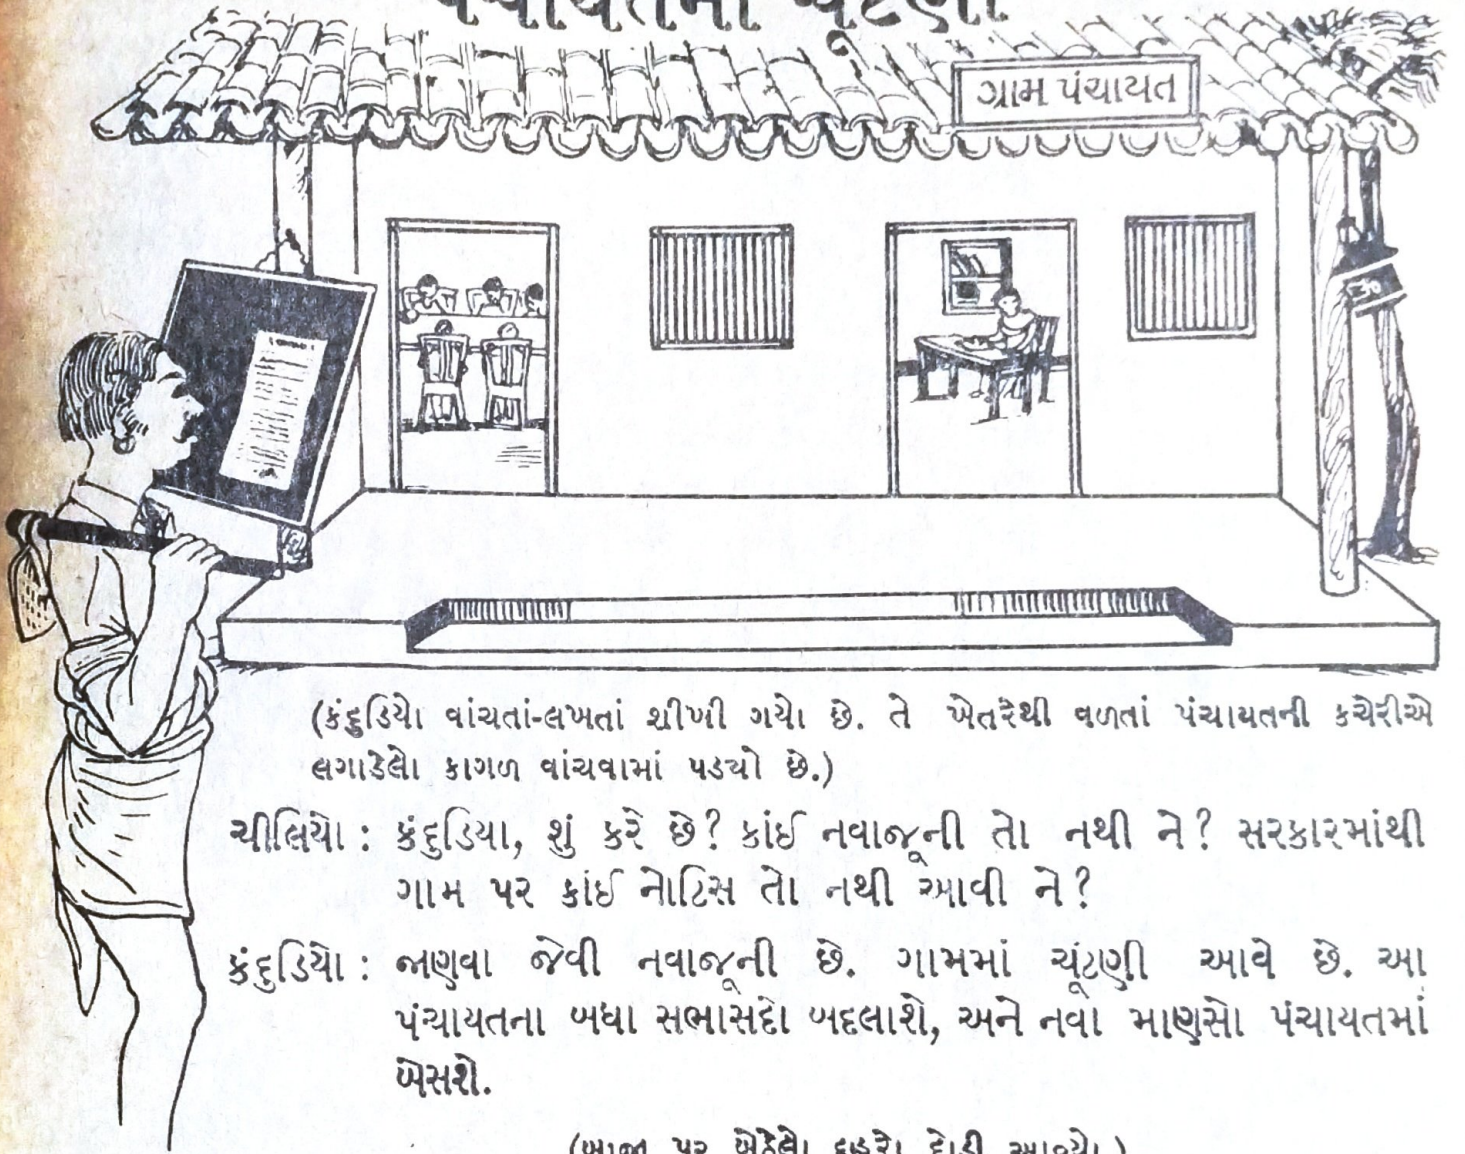 પંચાયતમાં ચૂંટણી
ગ્રામ પંચાયત
(કંદુડિયો વાંચતાં-લખતાં શીખી ગયો છે. તે ખેતરેથી વળતાં પંચાયતની કચેરીએ
લગાડેલો કાગળ વાંચવામાં પડ્યો છે.)
ચીલિયો : કંદુડિયા, શું કરે છે? કાંઈ નવાજૂની તો નથી ને? સરકારમાંથી
ગામ પર કાંઈ નોટિસ તો નથી આવી ને?
કંદુડિયો : જાણવા જેવી નવાજૂની છે. ગામમાં ચૂંટણી આવે છે. આ
પંચાયતના બધા સભાસદો બદલાશે, અને નવા માણસો પંચાયતમાં
બેસશે.
પર બેઠેલો દોડી આવ્યો.)